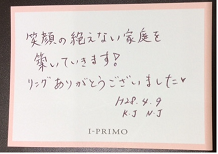 笑顔の絶えない家庭を
築いていきます!
リングありがとうございました♥
H28.4.9
K.J N.J
I-PRIMO